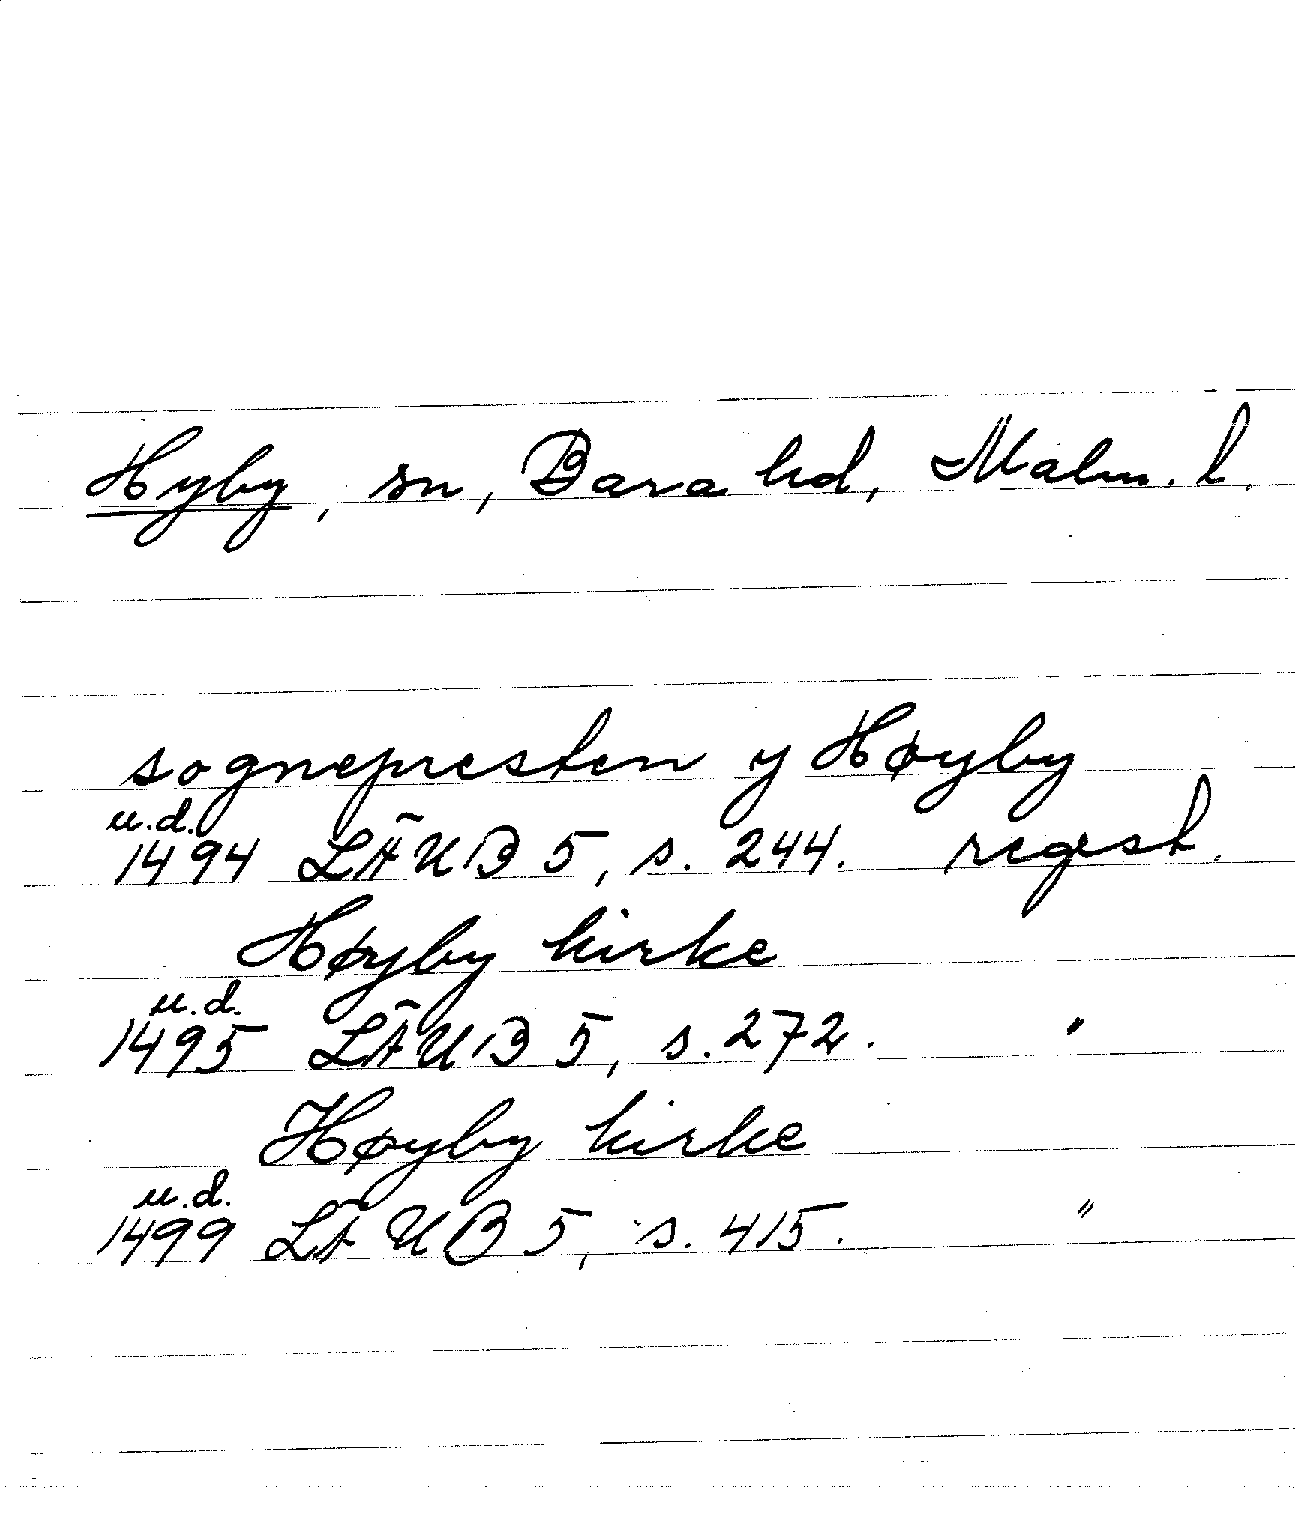 Hyby, sn, Bara hd, Malm. l.
sognepresten y Høyby
u.d.
1494 LÄUB 5, s. 244. regest.
Høyby kirke
u.d.
1495 LÄUB 5, s. 272. "
Høyby kirke
u.d.
1499 LÄUB 5, s. 415. "